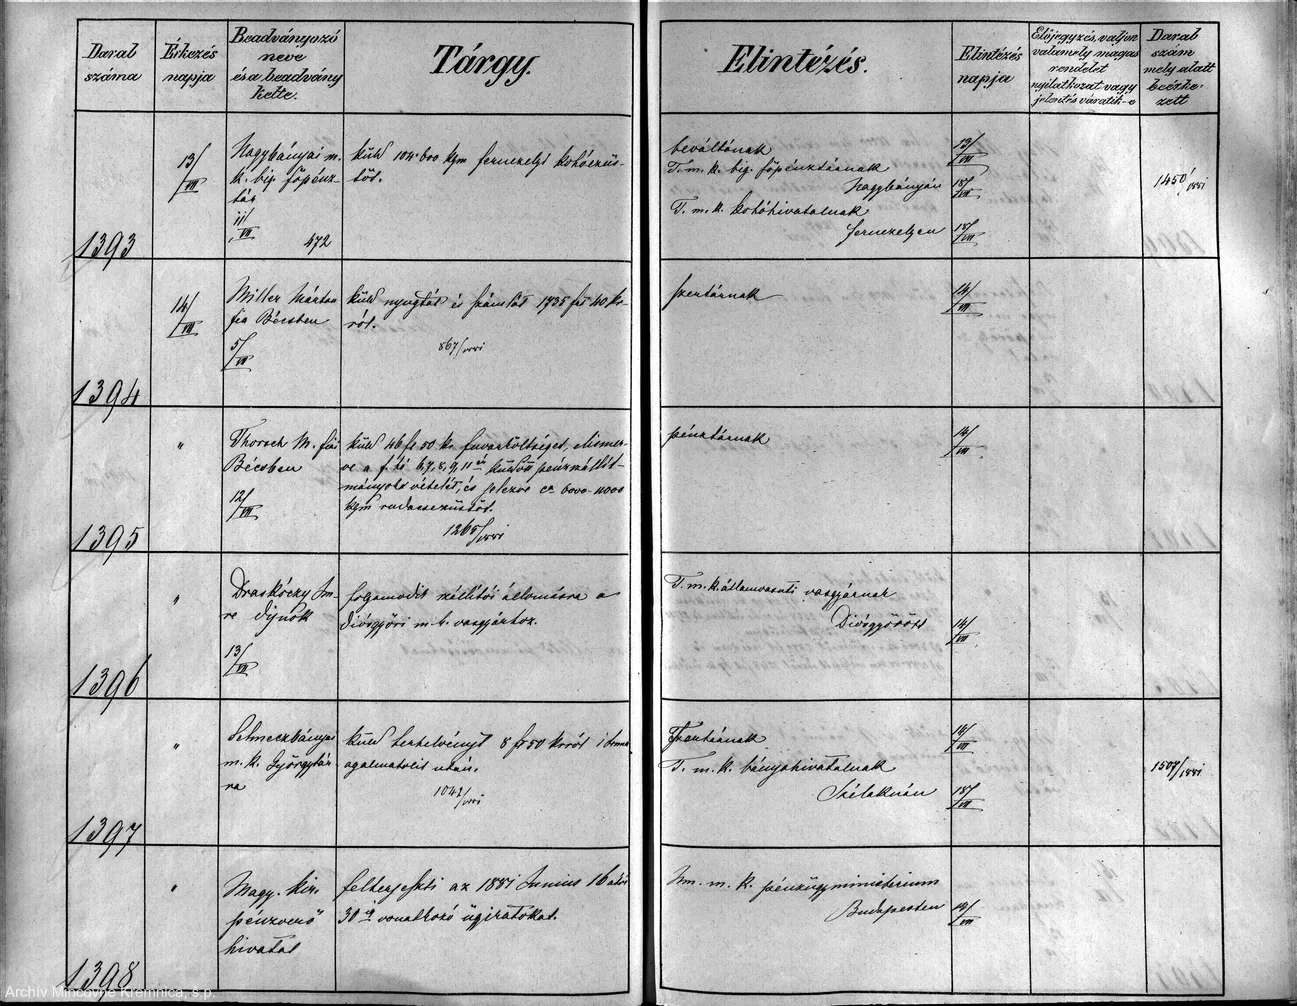 Darab
száma
Érkezés
napja
Beadványozó
neve
és a beadvány
kelte.
Tárgy.
Elintézés.
Elintézés
napja
Előjegyzés, valjon
valamely magas
rendelet
nyilatkozat vagy
jelentés váratik-e
Darab
szám
mely alatt
beérke-
zett
1393
13/VII
Nagybányai m.
k. big. főpénz-
tár
11/VII
472
küld 104·600 kgm fernezelyi kohóezüs-
töt.
beváltónak
T. m. k. big. főpénztárnak
Nagybányán
T. m. k. kohóhivatalnak
fernezelyen
13/VII
18/VII
18/VII
1450/1881
1394
14/VII
Miller Márton
fia Bécsben
5/VII
küld nyugtát és számlát 1735 frt 40 kr-
ról.
867/1881
szertárnak
14/VII
1395
"
Thorsch M. fiai
Bécsben
12/VII
küld 46 fr 50 kr fuvarköltséget, elismer-
ve a f. hó 6, 7, 8, 9, 11én küldött pénzszállít-
mányok vételét, és jelezve ca 6000-11000
kgm rudacsezüstöt.
1265/1881
pénztárnak
14/VII
1396
"
Draskóczy Im-
re díjnok
13/VII
folyamodik szállítói állomásra a
Diósgyőri m. k. vasgyárhoz.
T. m. k. államvasuti vasgyárnak
Diósgyőrött
14/VII
1397
"
Selmeczbányai
m. k. Györgytár-
na
küld térítvényt 8 fr 50 krról 1 tonna
agalmatolit után.
1042/1881
Szertárnak
T. m. k. bányahivatalnak
Szélaknán
14/VII
18/VII
1507/1881
1398
"
Magy. kir.
pénzverő
hivatal
felterjeszti az 1881 Junius 16 ától
30ig vonatkozó ügyiratokat.
Nm. m. k. pénzügyministerium
Budapesten
19/VII
Archív Mincovne Kremnica, š.p.